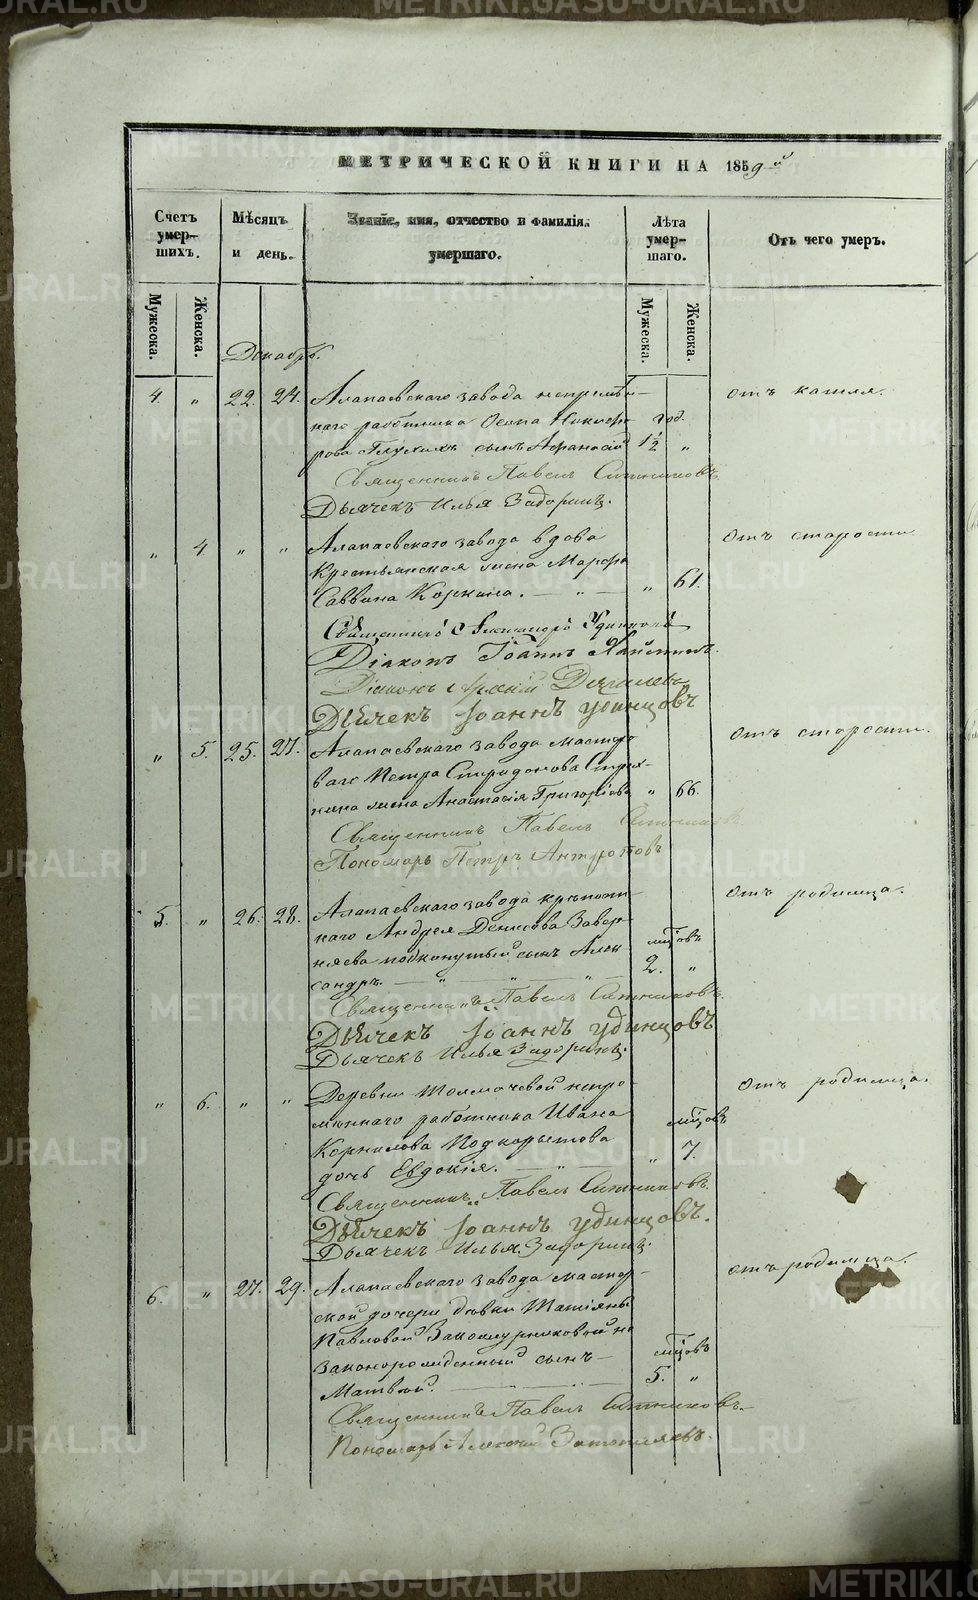 METRIKI.GASO-URAL.RU
МЕТРИЧЕСКОЙ КНИГИ НА 1859й
Счетъ умер-шихъ.
Мѣсяцъ и день.
Званіе, имя, отчество и фамилія умершаго.
Лѣта умер-шаго.
Отъ чего умеръ.
Мужеска.
Женска.
Мужеска.
Женска.
Декабрь.
4. " 22. 24. Алапаевскаго завода непремѣн- отъ кашля.
наго работника Осипа Никифо- год.
рова Глухихъ сынъ Афанасій 1½ "
Священникъ Павелъ Ситниковъ
Дьячекъ Илья Задоринъ.
" 4 " " Алапаевскаго завода вдова отъ старости
Крестьянская жена Марфа
Саввина . " 61.
Священникъ Александръ Удинцовъ
Діаконъ Іоаннъ
Діаконъ Дягилевъ
Дьячекъ Іоаннъ Удинцовъ
" 5. 25. 27. Алапаевскаго завода мастеро- отъ старости.
ваго Петра Спиридонова
жена Анастасія Григоріева " 66.
Священникъ Павелъ Ситниковъ
Пономарь Петръ Антроповъ
5. " 26. 28. Алапаевскаго завода крѣпост- отъ родимца.
наго Андрея Денисова Завер-
няева подкинутый сынъ Алек- мцовъ
сандръ. 2. "
Священникъ Павелъ Ситниковъ
Дьячекъ Іоаннъ Удинцовъ
Дьячекъ Илья Задоринъ.
" 6. " " Деревни Толмачевой непре- отъ родимца.
меннаго работника Ивана мцовъ
Корнилова Подкорытова
дочь Евдокія. " 7.
Священникъ Павелъ Ситниковъ
Дьячекъ Іоаннъ Удинцовъ.
Дьячекъ Илья Задоринъ.
6. " 27. 29. Алапаевскаго завода мастер- отъ родимца.
ской дочери дѣвки Татіяны
Павловой не
законорожденный сынъ мцовъ
Матвей. 5. "
Священникъ Павелъ Ситниковъ
Пономарь Алексѣй